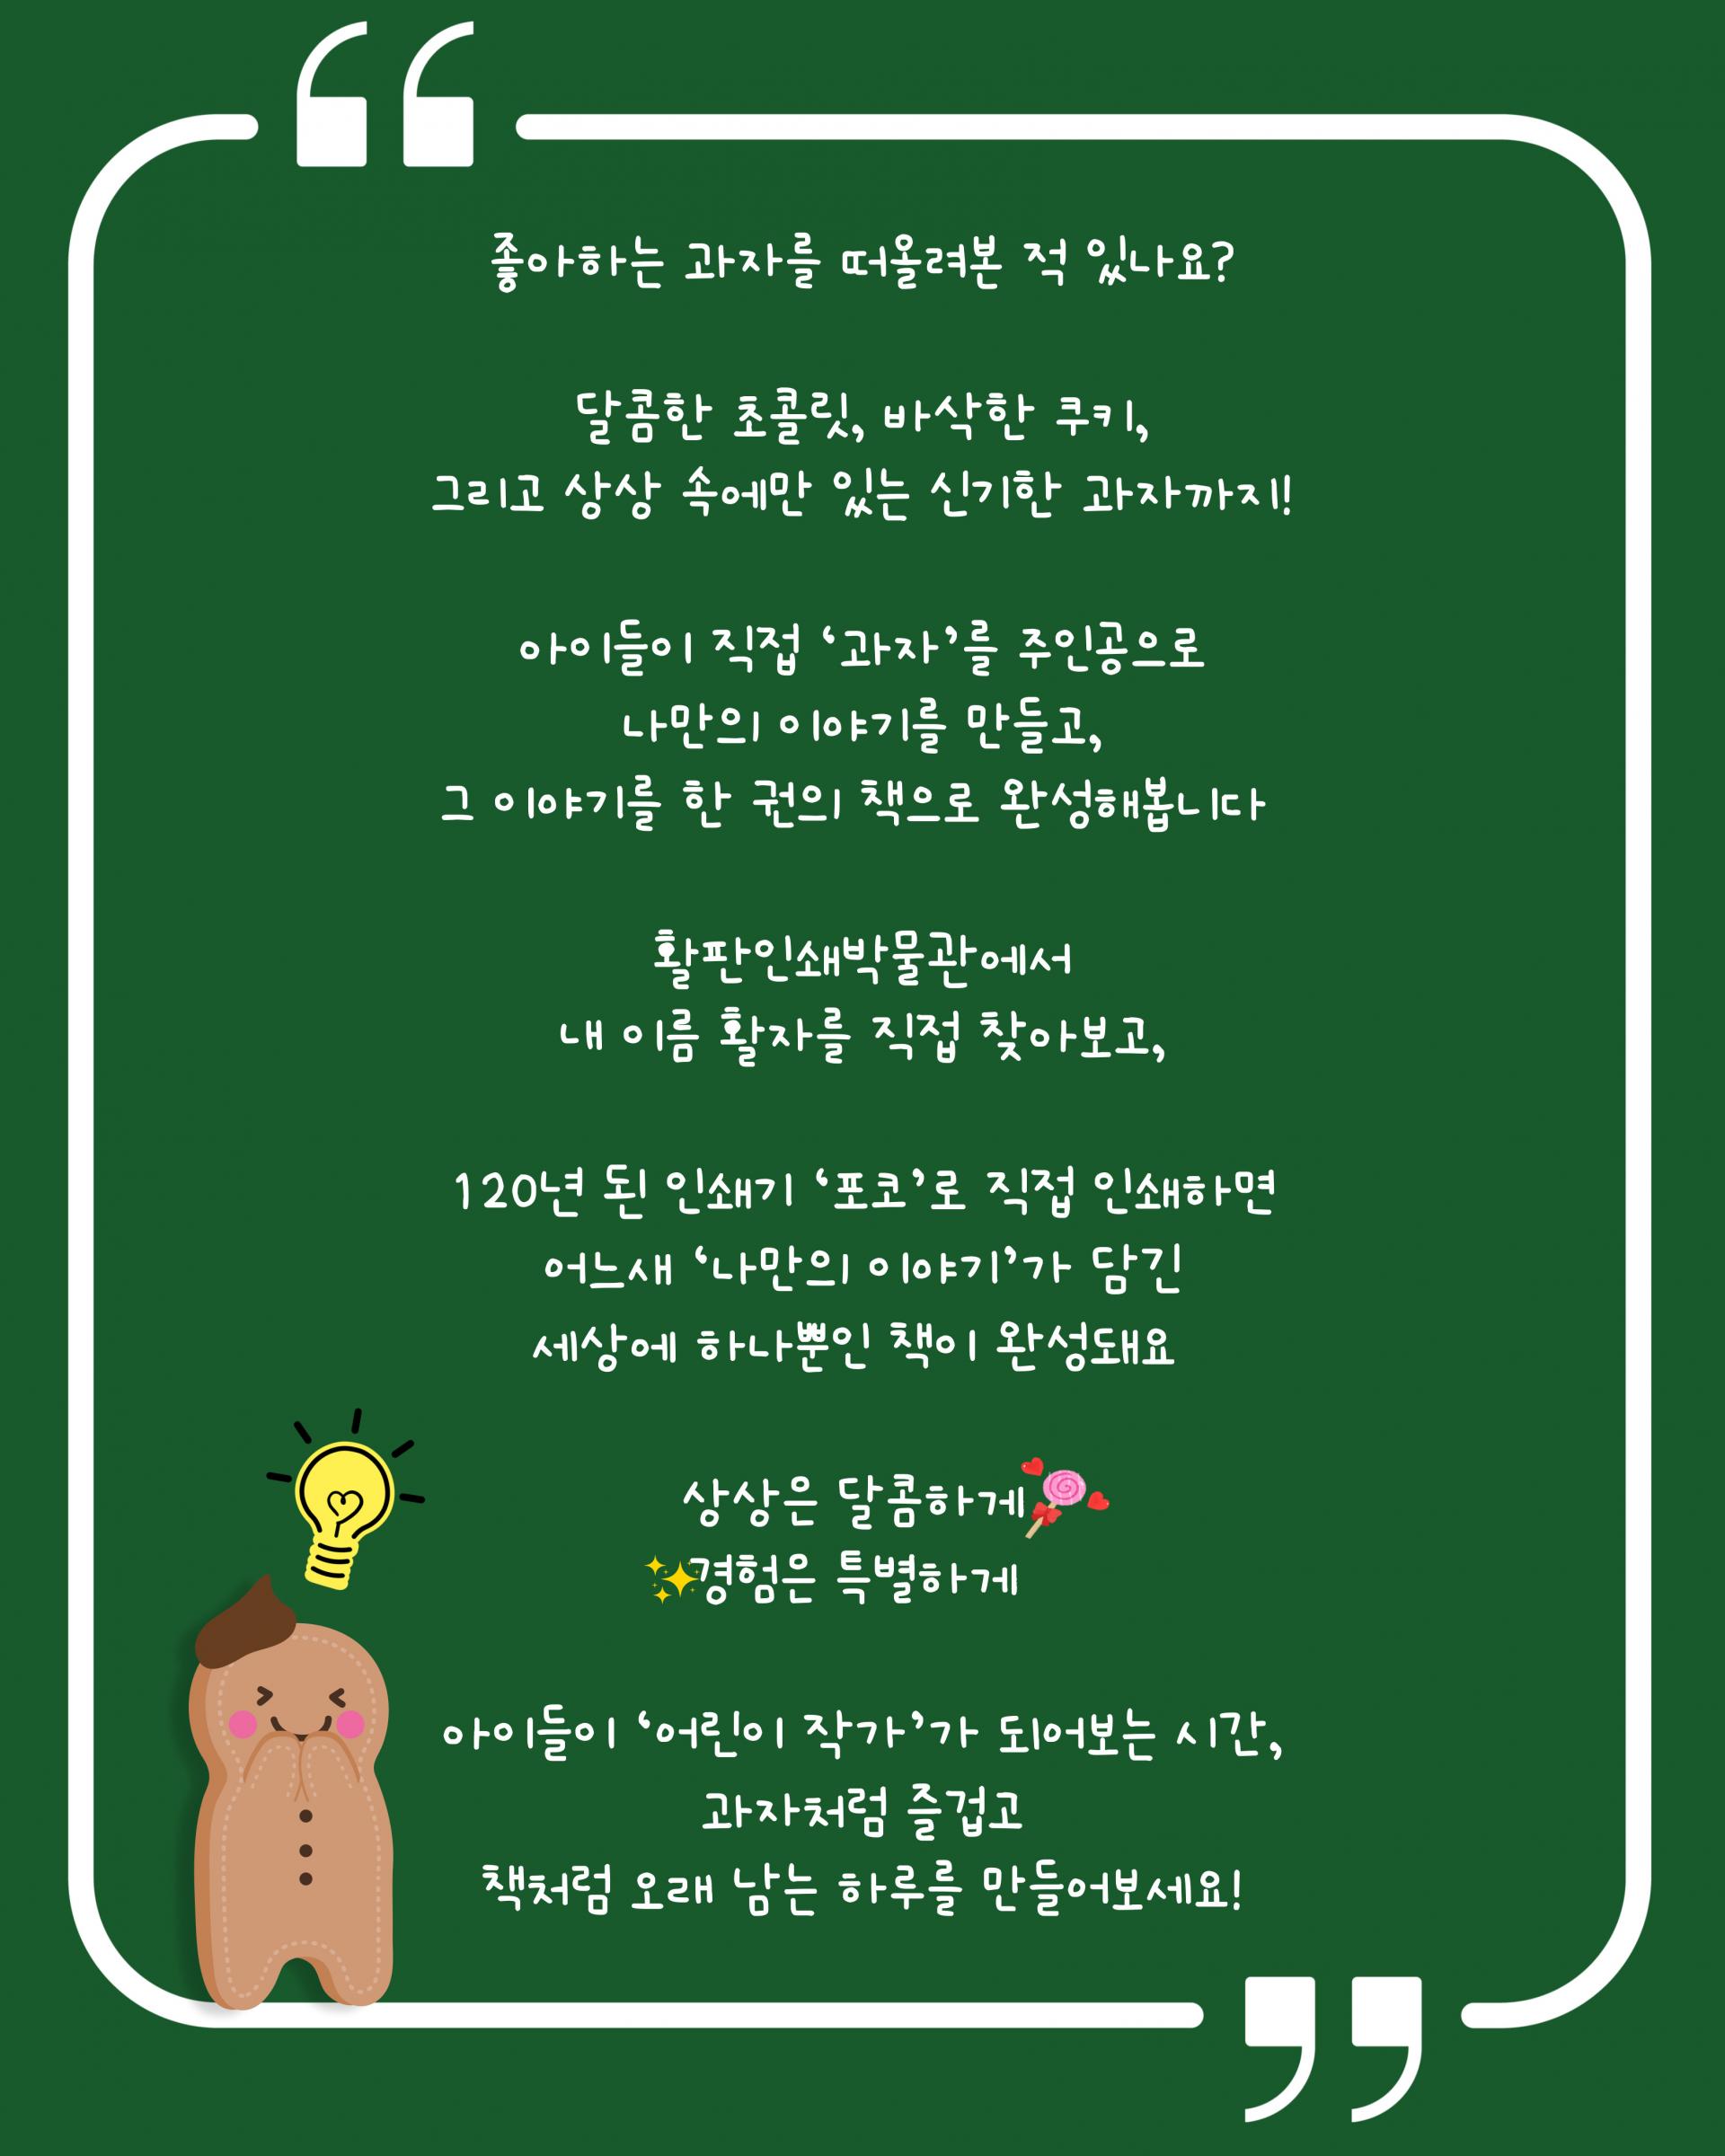 좋아하는 과자를 떠올려본 적 있나요?
달콤한 초콜릿, 바삭한 쿠키,
그리고 상상 속에만 있는 신기한 과자까지!
아이들이 직접 ‘과자’를 주인공으로
나만의 이야기를 만들고,
그 이야기를 한 권의 책으로 완성해봅니다
활판인쇄박물관에서
내 이름 활자를 직접 찾아보고,
120년 된 인쇄기 ‘포코’로 직접 인쇄하면
어느새 ‘나만의 이야기’가 담긴
세상에 하나뿐인 책이 완성돼요
상상은 달콤하게
경험은 특별하게
아이들이 ‘어린이 작가’가 되어보는 시간,
과자처럼 즐겁고
책처럼 오래 남는 하루를 만들어보세요!